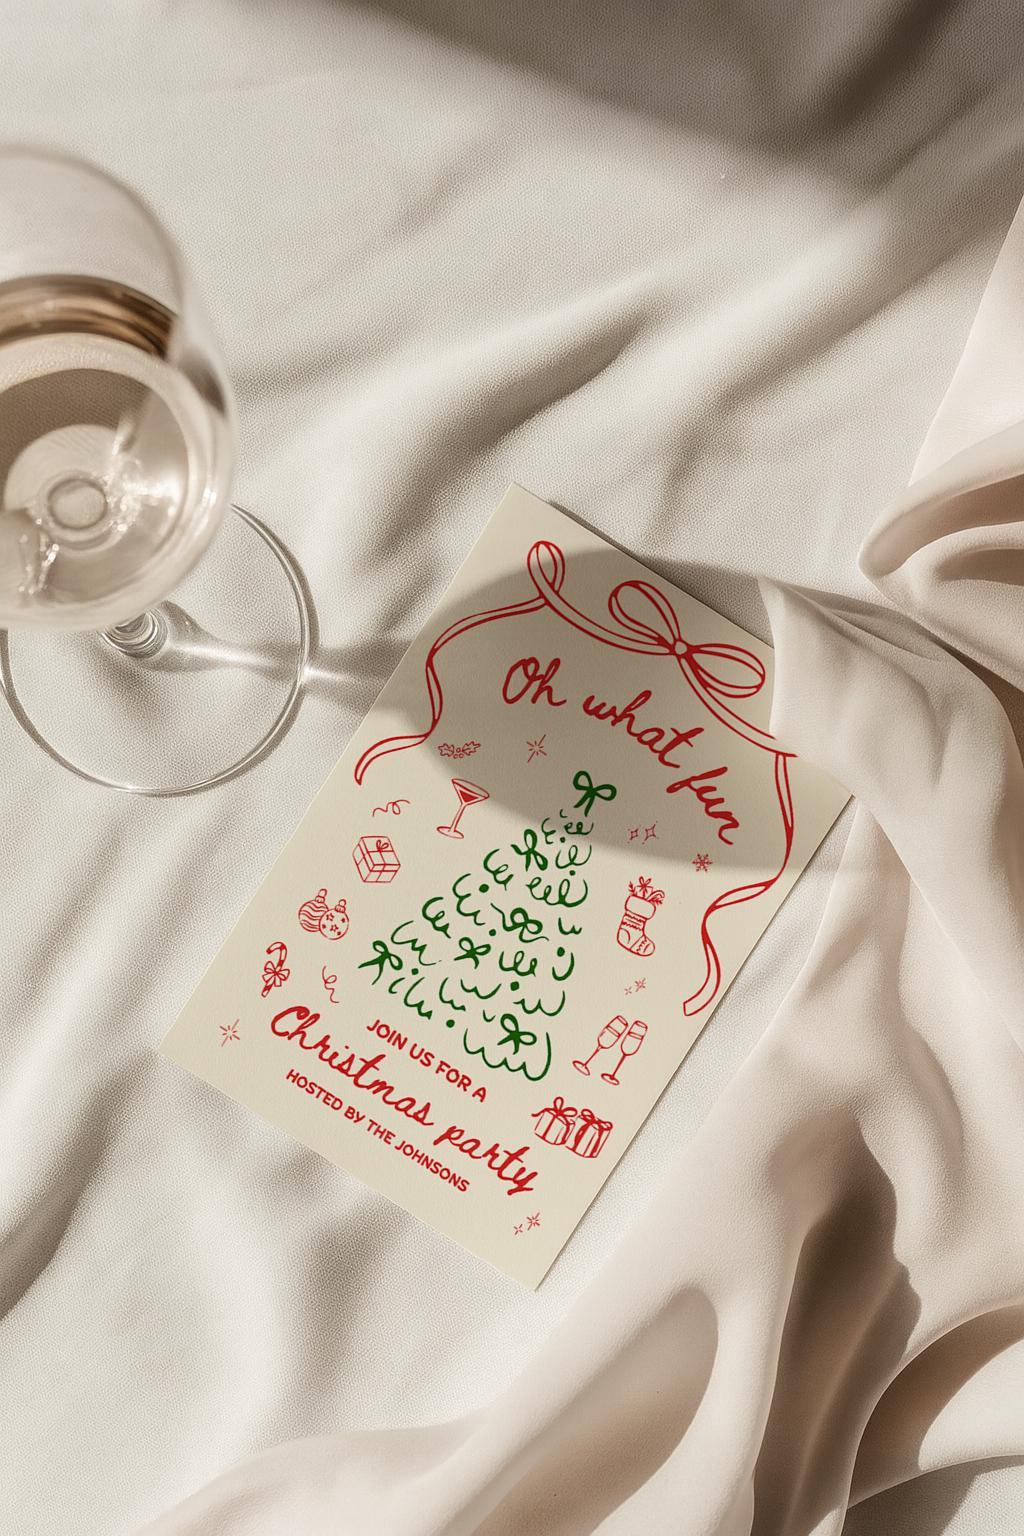 Oh what fun
JOIN US FOR A
Christmas party
HOSTED BY THE JOHNSONS